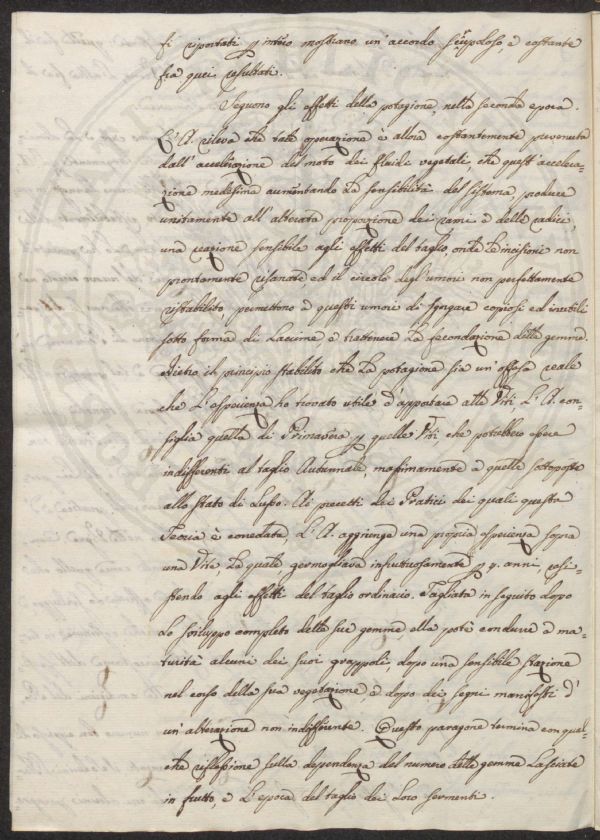 si riportati p intero mostrano un' accordo scrupoloso, e costante
fra quei resultati.
Seguono gli effetti della potagione, nella seconda epoca.
L'A. rileva che tale operazione è allora costantemente prevenuta
dall' accelerazione del moto dei fluidi vegetali, che quest' accelera-
zione medesima aumentando la sensibilità del sistema, produce
unitamente all' alterata proporzione dei rami e delle radici,
una reazione sensibile agli effetti del taglio, onde le incisioni non
prontamente risanate ed il circolo degl' umori non perfettamente
ristabilito, permettono a questi umori di sgorgare copiosi ed inutili
sotto forma di Lacrime e trattenere la fecondazione delle gemme.
Dietro il principio stabilito che la potagione sia un' offesa reale
che l' esperienza ha trovato utile d' apportare alle Viti, L'A. con-
siglia quella di Primavera p quelle Viti, che potrebbero essere
indifferenti al taglio Autunnale, massimamente a quelle sottoposte
allo stato di Lusso. Ai precetti dei Pratici dei quali questa
Teoria è corredata, L'A. aggiunge una propria esperienza sopra
una Vite, la quale germogliava infruttuosamente p 9. anni, resi-
stendo agli effetti del taglio ordinario. Tagliata in seguito dopo
lo sviluppo completo delle sue gemme, ella potè condurre a ma-
turità alcuni dei suoi grappoli, dopo una sensibile stazione
nel corso della sua vegetazione, e dopo dei segni manifesti d'
un' alterazione non indifferente. Questo paragone termina con qual-
che riflessione sulla dependenza del numero delle gemme lasciate
in frutto, e l' epoca del taglio dei loro sermenti.